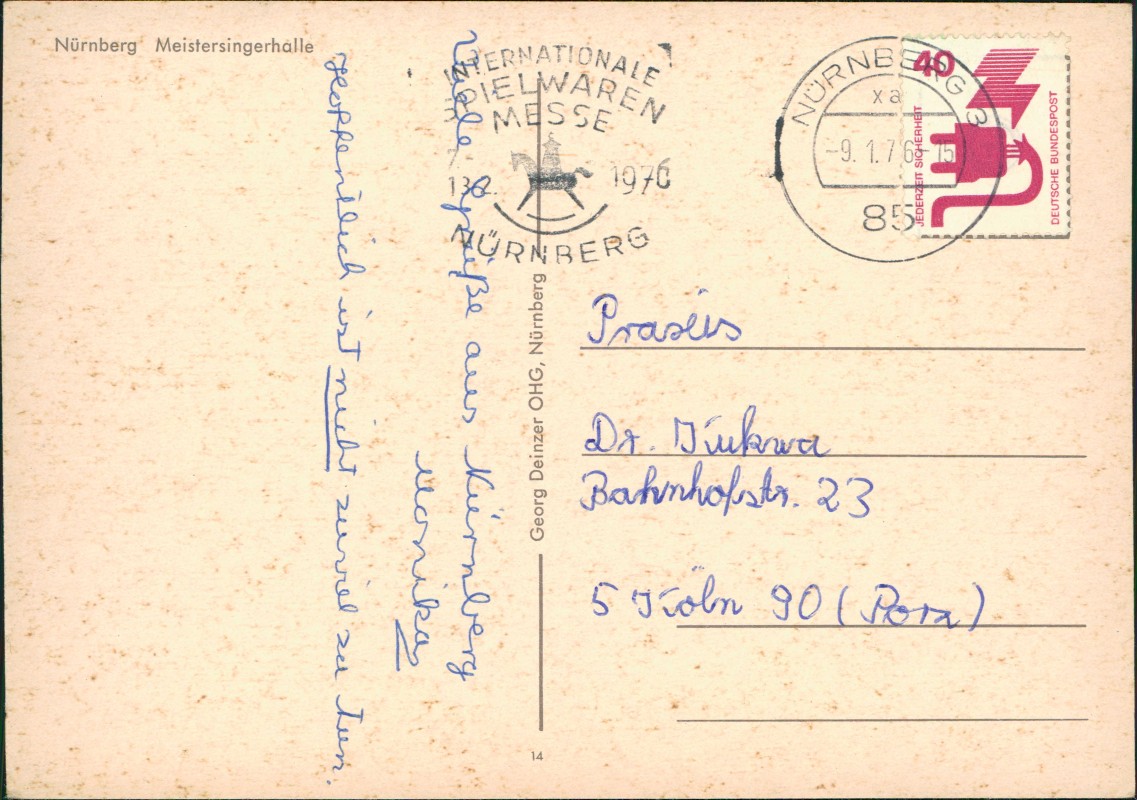 Nürnberg Meistersingerhalle
INTERNATIONALE
SPIELWAREN
MESSE
7.-
13.2. 1976
NÜRNBERG
NÜRNBERG 3
xa
-9.1.76-15
85
40
JEDERZEIT SICHERHEIT
DEUTSCHE BUNDESPOST
Viele Grüße aus Nürnberg
Monika
Hoffentlich ist nicht zuviel zu tun.
Georg Deinzer OHG, Nürnberg
14
Praxis
Dr. Kukwa
Bahnhofstr. 23
5 Köln 90 (Porz)